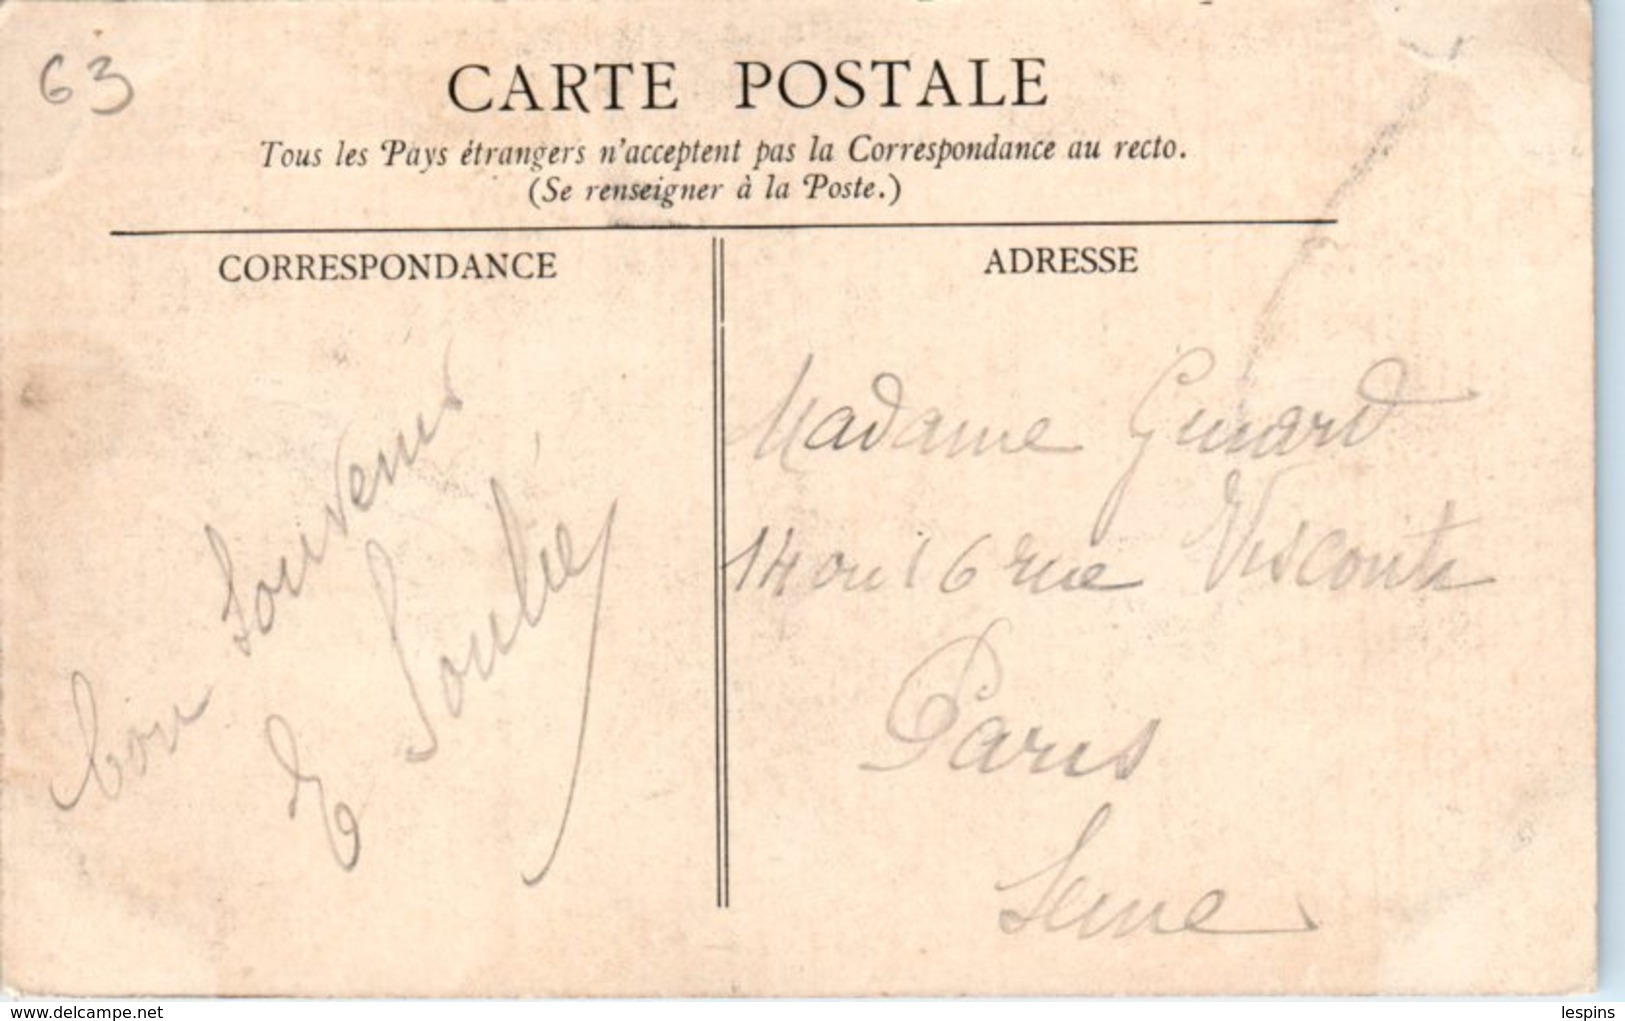 63
CARTE POSTALE
Tous les Pays étrangers n'acceptent pas la Correspondance au recto.
(Se renseigner à la Poste.)
CORRESPONDANCE
bon souvenir
E Soulié
ADRESSE
Madame
14 ou 16 rue Visconti
Paris
Seine
delcampe.net
lespins